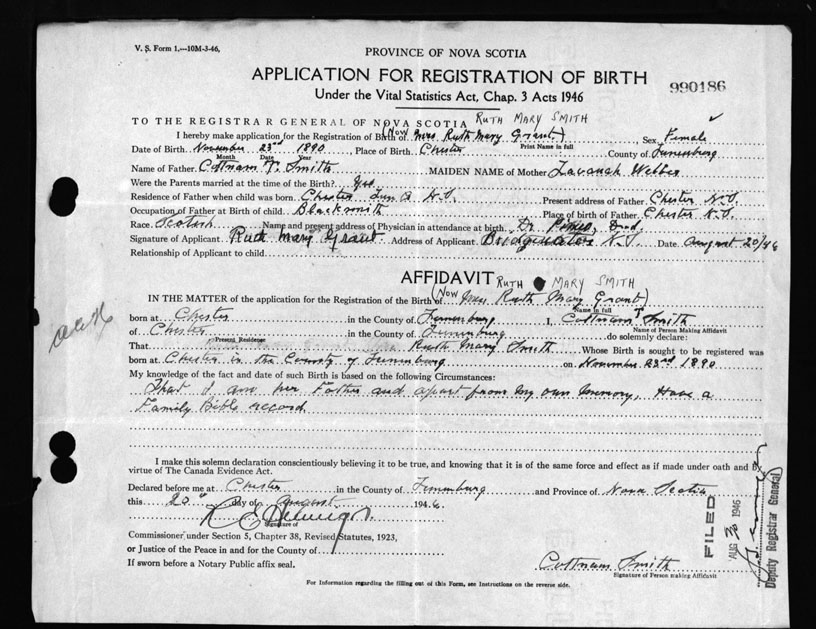 V. S. Form 1.—10M-3-46.
PROVINCE OF NOVA SCOTIA
APPLICATION FOR REGISTRATION OF BIRTH
990186
Under the Vital Statistics Act, Chap. 3 Acts 1946
RUTH MARY SMITH
TO THE REGISTRAR GENERAL OF NOVA SCOTIA
I hereby make application for the Registration of Birth of (Now Mrs. Ruth Mary Grant) Sex Female
Print Name in full
Date of Birth November 23rd 1890, Place of Birth Chester County of Lunenburg
Month Date Year
Name of Father Cottnam T. Smith MAIDEN NAME of Mother Zavanah Webber
Were the Parents married at the time of the Birth? Yes
Residence of Father when child was born Chester Lun Co N.S. Present address of Father Chester N.S.
Occupation of Father at Birth of child Blacksmith Place of birth of Father Chester N.S.
Race Scotish Name and present address of Physician in attendance at birth Dr.
Signature of Applicant Ruth Mary Grant Address of Applicant Bridgewater N.S. Date August 20/46
Relationship of Applicant to child
AFFIDAVIT
RUTH MARY SMITH
IN THE MATTER of the application for the Registration of the Birth of (Now Mrs. Ruth Mary Grant)
Name in full
born at Chester in the County of Lunenburg I, Cottnam T Smith
Name of Person Making Affidavit
of Chester in the County of Lunenburg do solemnly declare:
Present Residence
That Ruth Mary Smith Whose Birth is sought to be registered was
born at Chester in the County of Lunenburg on November 23rd 1890
My knowledge of the fact and date of such Birth is based on the following Circumstances:
That I am her Father and apart from my own memory, Have a
Family Bible record
I make this solemn declaration conscientiously believing it to be true, and knowing that it is of the same force and effect as if made under oath and by
virtue of The Canada Evidence Act.
Declared before me at Chester in the County of Lunenburg and Province of Nova Scotia
this 20th day of August 1946
Signature of
Commissioner under Section 5, Chapter 38, Revised Statutes, 1923,
or Justice of the Peace in and for the County of
If sworn before a Notary Public affix seal.
Cottnam Smith
Signature of Person making Affidavit
For Information regarding the filling out of this Form, see Instructions on the reverse side.
FILED
AUG 30 1946
Deputy Registrar General